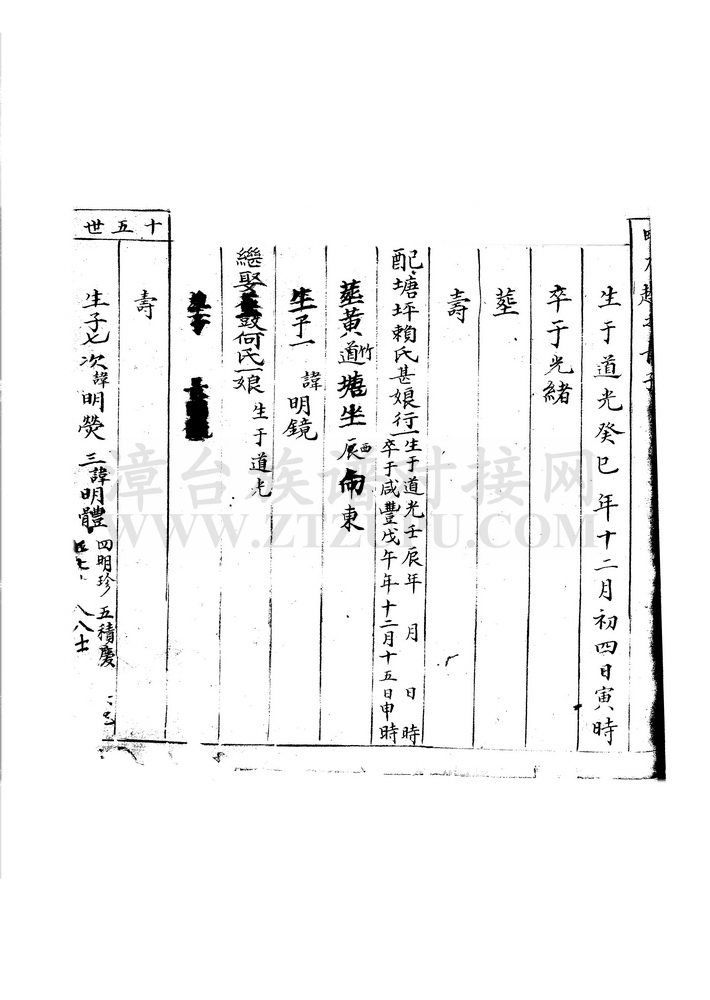 生于道光癸巳年十二月初四日寅時
卒于光緒
塟
壽
配塘坪賴氏甚娘行一
生于道光壬辰年 月 日 時
卒于咸豐戊午年十二月十五日申時
塟黄竹道塘坐辰西向東
生子一 諱明鏡
繼娶 何氏一娘 生于道光
壽
十五世
生子七 次諱明熒 三諱明體 四明珍 五積慶
漳台族谱对接网
WWW.ZTZUPU.COM